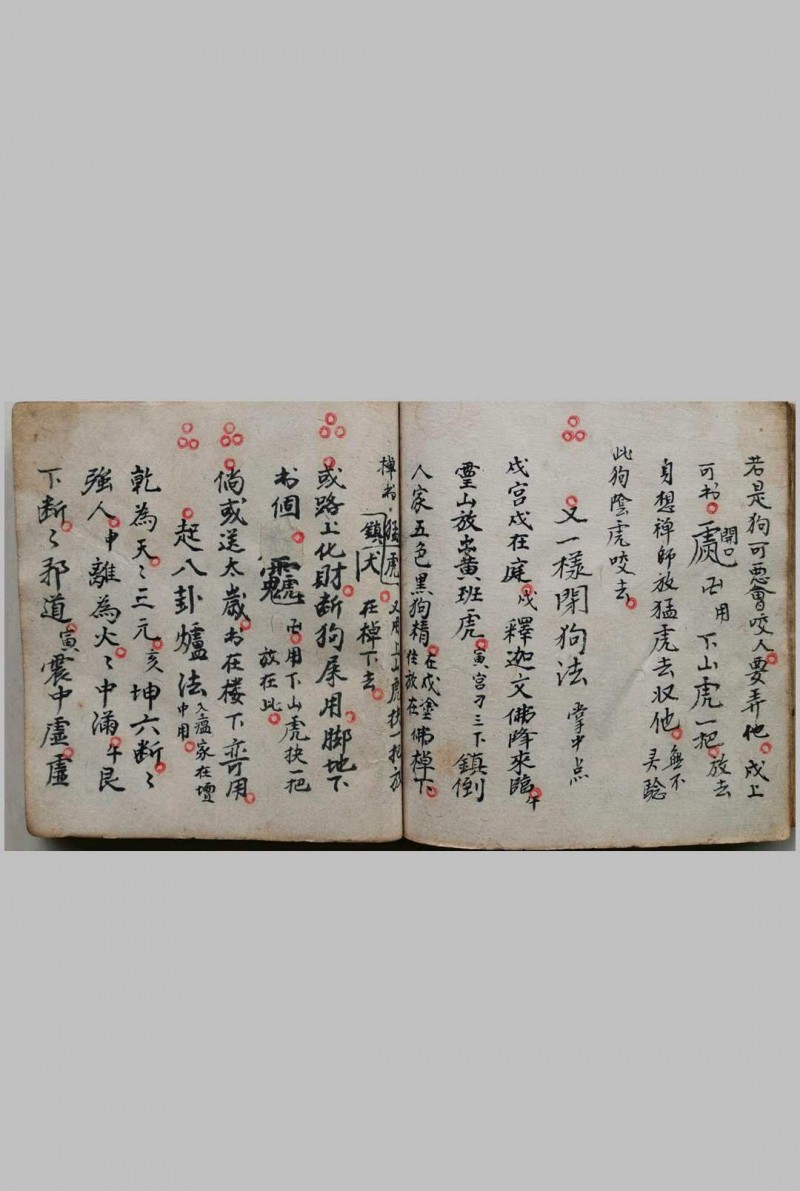 若是狗可惡會咬人要弄他戍上
可书 開口 用下山虎一把放去
自想禅師放猛虎去収他無不灵騐
此狗陰虎咬去
又一樣閉狗法 掌中点
戍宮戍在庭戍釋迦文佛降來臨午
靈山放出黄班虎寅宮刁三下鎮倒
人家五色黑狗精在戍塗佛棹下
佳放在
棹书猛虎又用上山虎抉一把放
鎮犬在棹下去
或路上化財断狗屎用脚地下
书個 用下山虎抉一把
放在此
倘或送太歲书在楼下亦可用
起八卦爐法入瘟家在壇中用
乾為天〻三元亥坤六断〻
強人申離為火〻中滿午艮
下断〻邪道寅震中虛虛